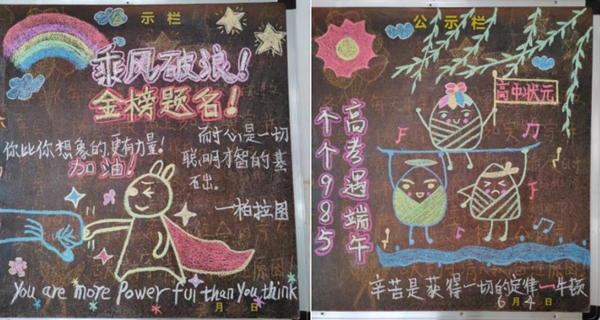 公示栏
乘风破浪！
金榜题名！
你比你想象的更有力量！
加油！
耐心是一切
聪明才智的基
石出。
—柏拉图
You are more Powerful than You think
月 日
公示栏
高中状元
高考遇端午
个个985
辛苦是获得一切的定律—牛顿
6月4日